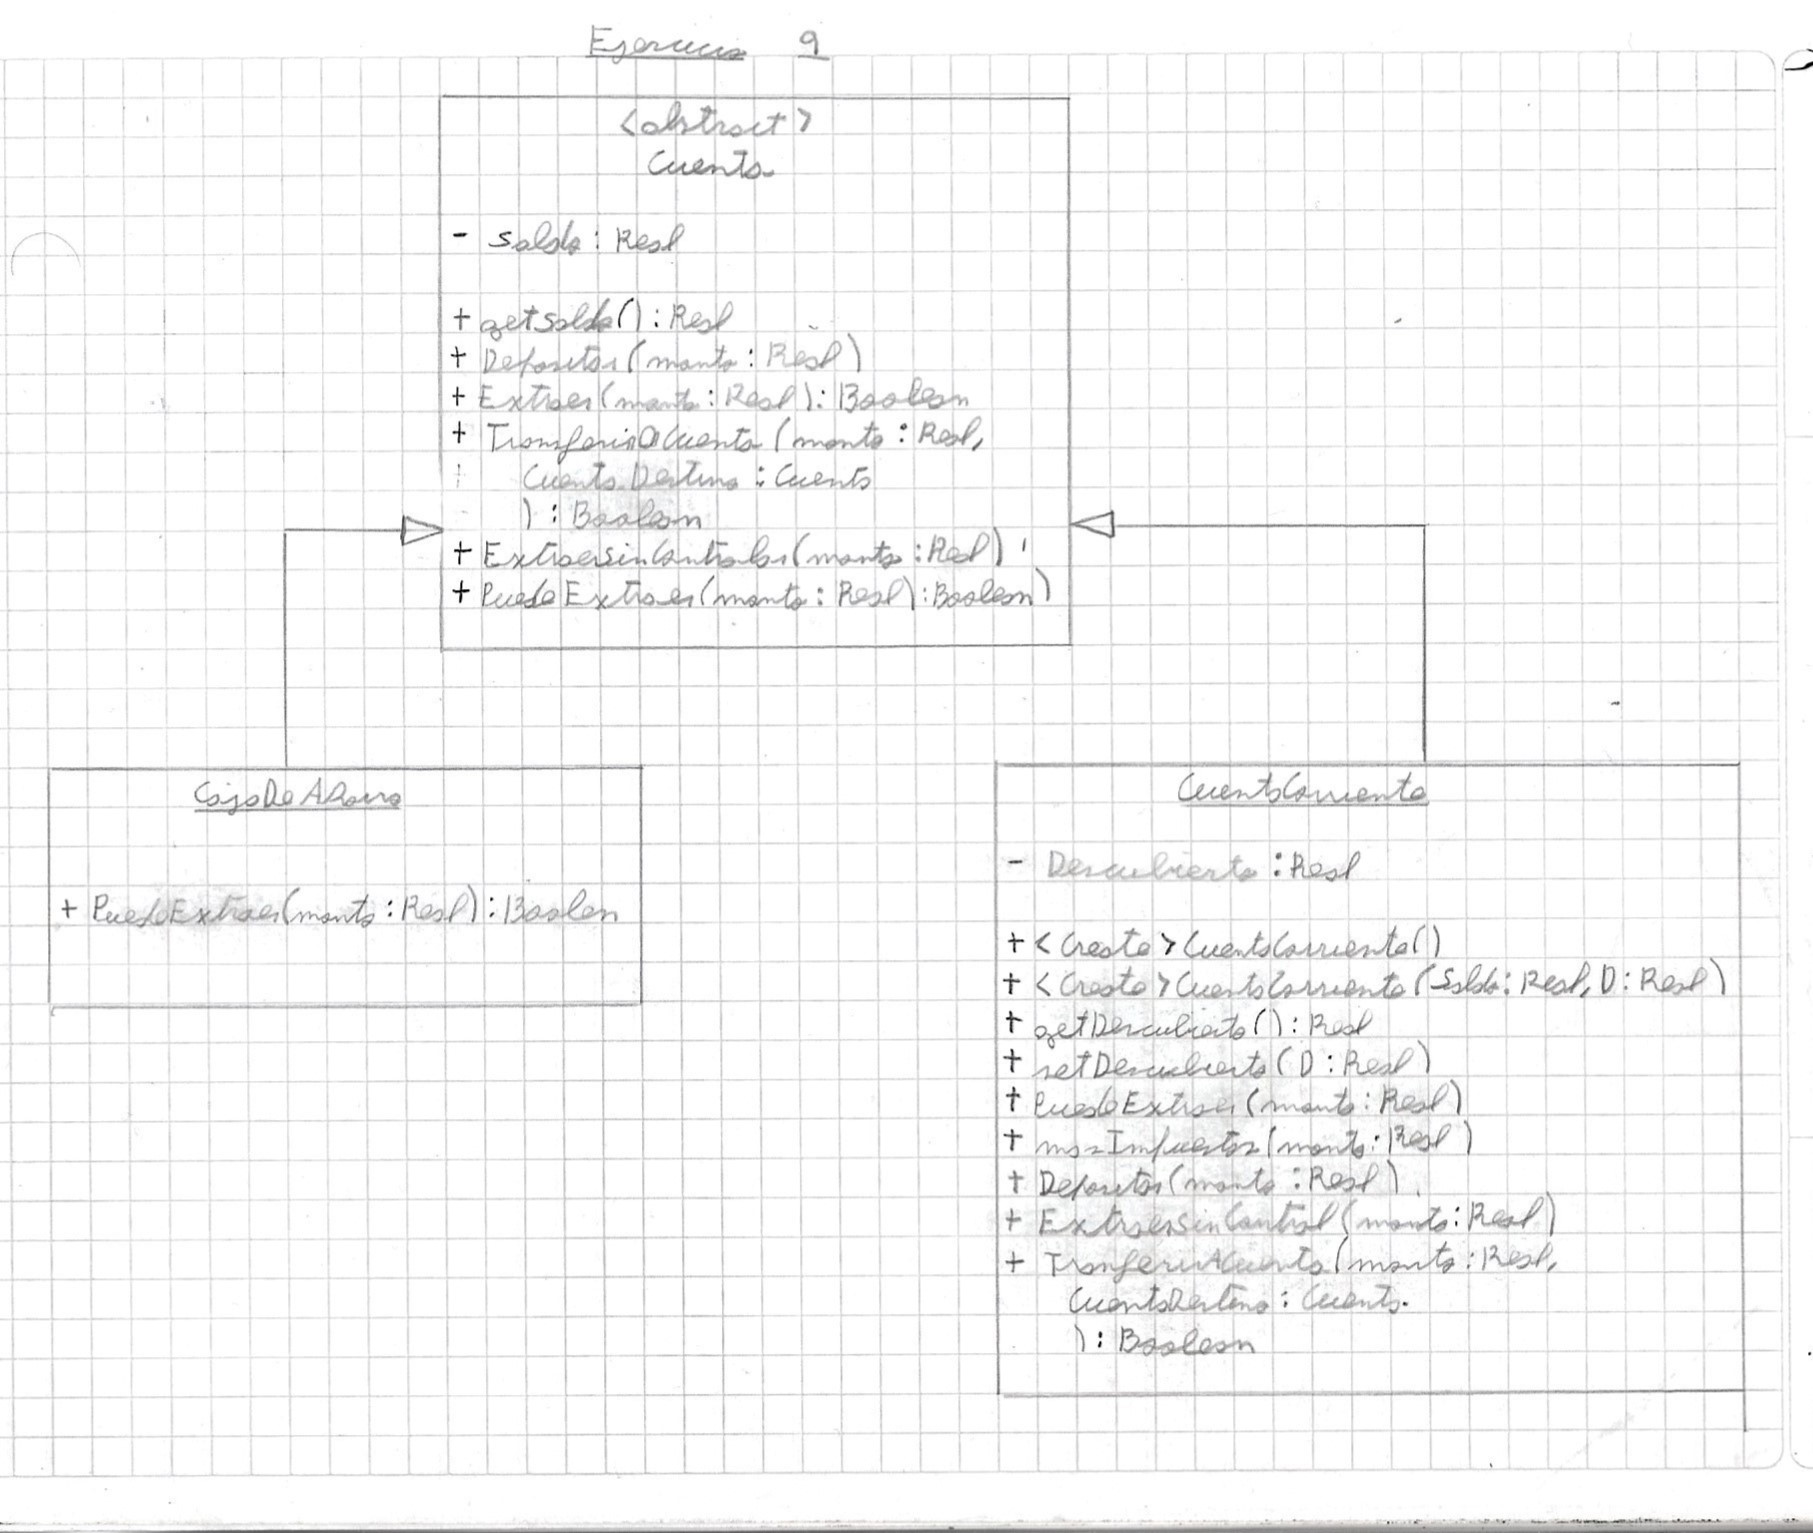 Ejercicio 9
<abstract>
Cuenta
- saldo : Real
+ getSaldo() : Real
+ Depositar(monto : Real)
+ Extraer(monto : Real) : Boolean
+ TransferirACuenta (monto : Real,
CuentaDestino : Cuenta
) : Boolean
+ ExtraerSinControlar(monto : Real)
+ PuedeExtraer(monto : Real) : Boolean)
CajaDeAhorro
+ PuedeExtraer(monto : Real) : Boolen
CuentaCorriente
- Descubierto : Real
+ <Create> CuentaCorriente()
+ <Create> CuentaCorriente (Saldo : Real, D : Real)
+ getDescubierto() : Real
+ setDescubierto(D : Real)
+ PuedeExtraer (monto : Real)
+ masImpuestos(monto : Real)
+ Depositar(monto : Real)
+ ExtraerSinControl(monto : Real)
+ TranferirACuenta(monto : Real,
CuentaDestino : Cuenta
) : Boolean